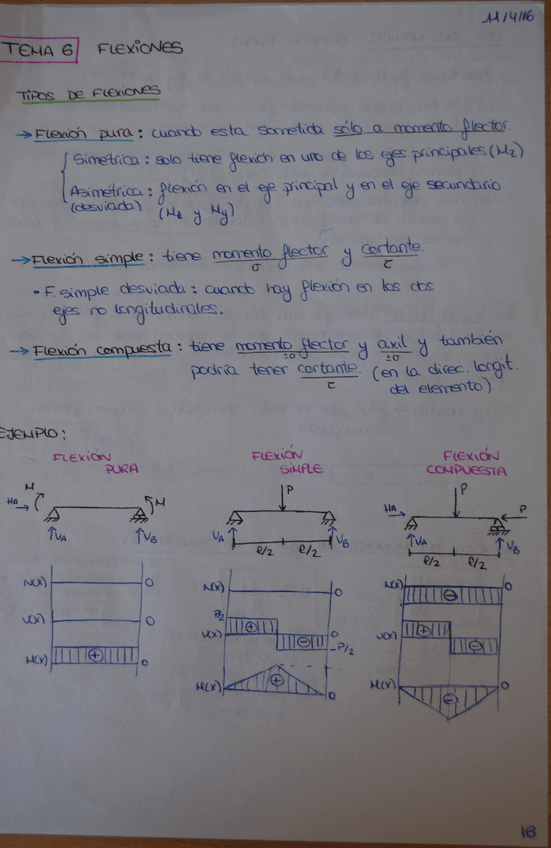 11/4/16
TEMA 6 FLEXIONES
TIPOS DE FLEXIONES
→ Flexión pura: cuando esta sometida sólo a momento flector.
Simétrica: solo tiene flexión en uno de los ejes principales (Mz)
Asimétrica: flexión en el eje principal y en el eje secundario
(desviada) (Mz y My)
→ Flexión simple: tiene momento flector y cortante.
σ τ
• F. simple desviada: cuando hay flexión en los dos
ejes no longitudinales.
→ Flexión compuesta: tiene momento flector y axil y también
±σ ±σ
podría tener cortante. (en la direc. longit.
τ del elemento)
EJEMPLO:
FLEXIÓN PURA
FLEXIÓN SIMPLE
FLEXIÓN COMPUESTA
M M P P
HA HA P
VA VB VA VB VA VB
l/2 l/2 l/2 l/2
N(x) 0 0 N(x) ⊖ 0
V(x) 0 P/2 V(x) ⊕ ⊖ 0 -P/2 V(x) ⊕ ⊖
M(x) ⊕ 0 M(x) ⊕ 0 M(x) ⊖ 0
18